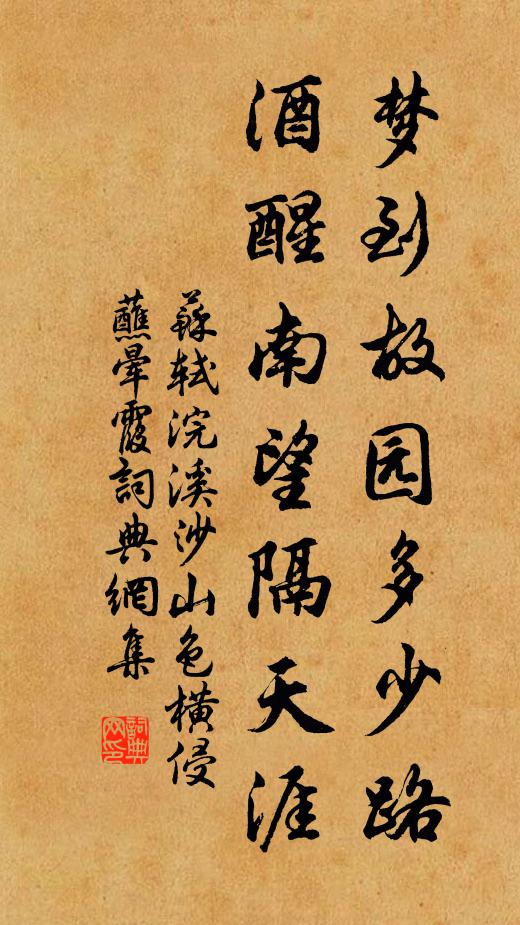 梦到故园多少路
酒醒南望隔天涯
蘇轼浣溪沙山色横侵
蘸晕霞詞典網集
詞典网印